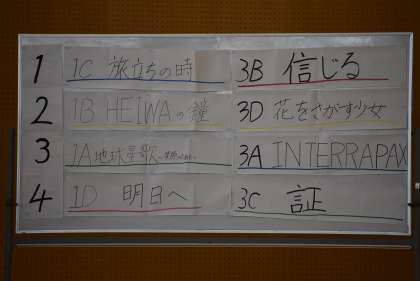 1 1C 旅立ちの時 3B 信じる
2 1B HEIWAの鐘 3D 花をさがす少女
3 1A 地球星歌 3A INTERRAPAX
4 1D 明日へ 3C 証